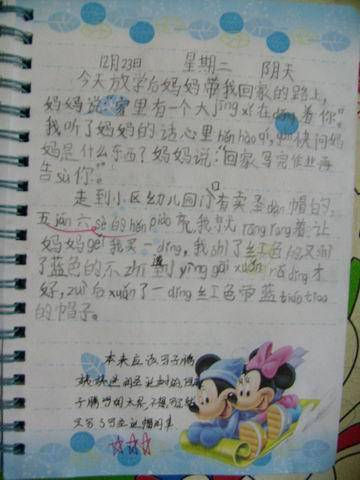 12月23日 星期二 阴天
今天放学后妈妈带我回家的路上,
妈妈说:"家里有一个大jīng xǐ在děng着你。"
我听了妈妈的话心里hěn hào qí,gǎn快问妈
妈是什么东西?妈妈说:"回家写完作业再
告sù你"。
走到小区幼儿园门口有卖圣dàn帽的,
五yán六sè的hěn piào亮,我就rāng rang着让
妈妈gěi我买一dǐng,我shì了红色的又shì
了蓝色的不zhī道yīng gāi xuǎn nǎ dǐng才
好,zuì后xuǎn了一dǐng红色带蓝tiáo tiao
的帽子。
本来应该写子腾
子腾
圣诞帽的事